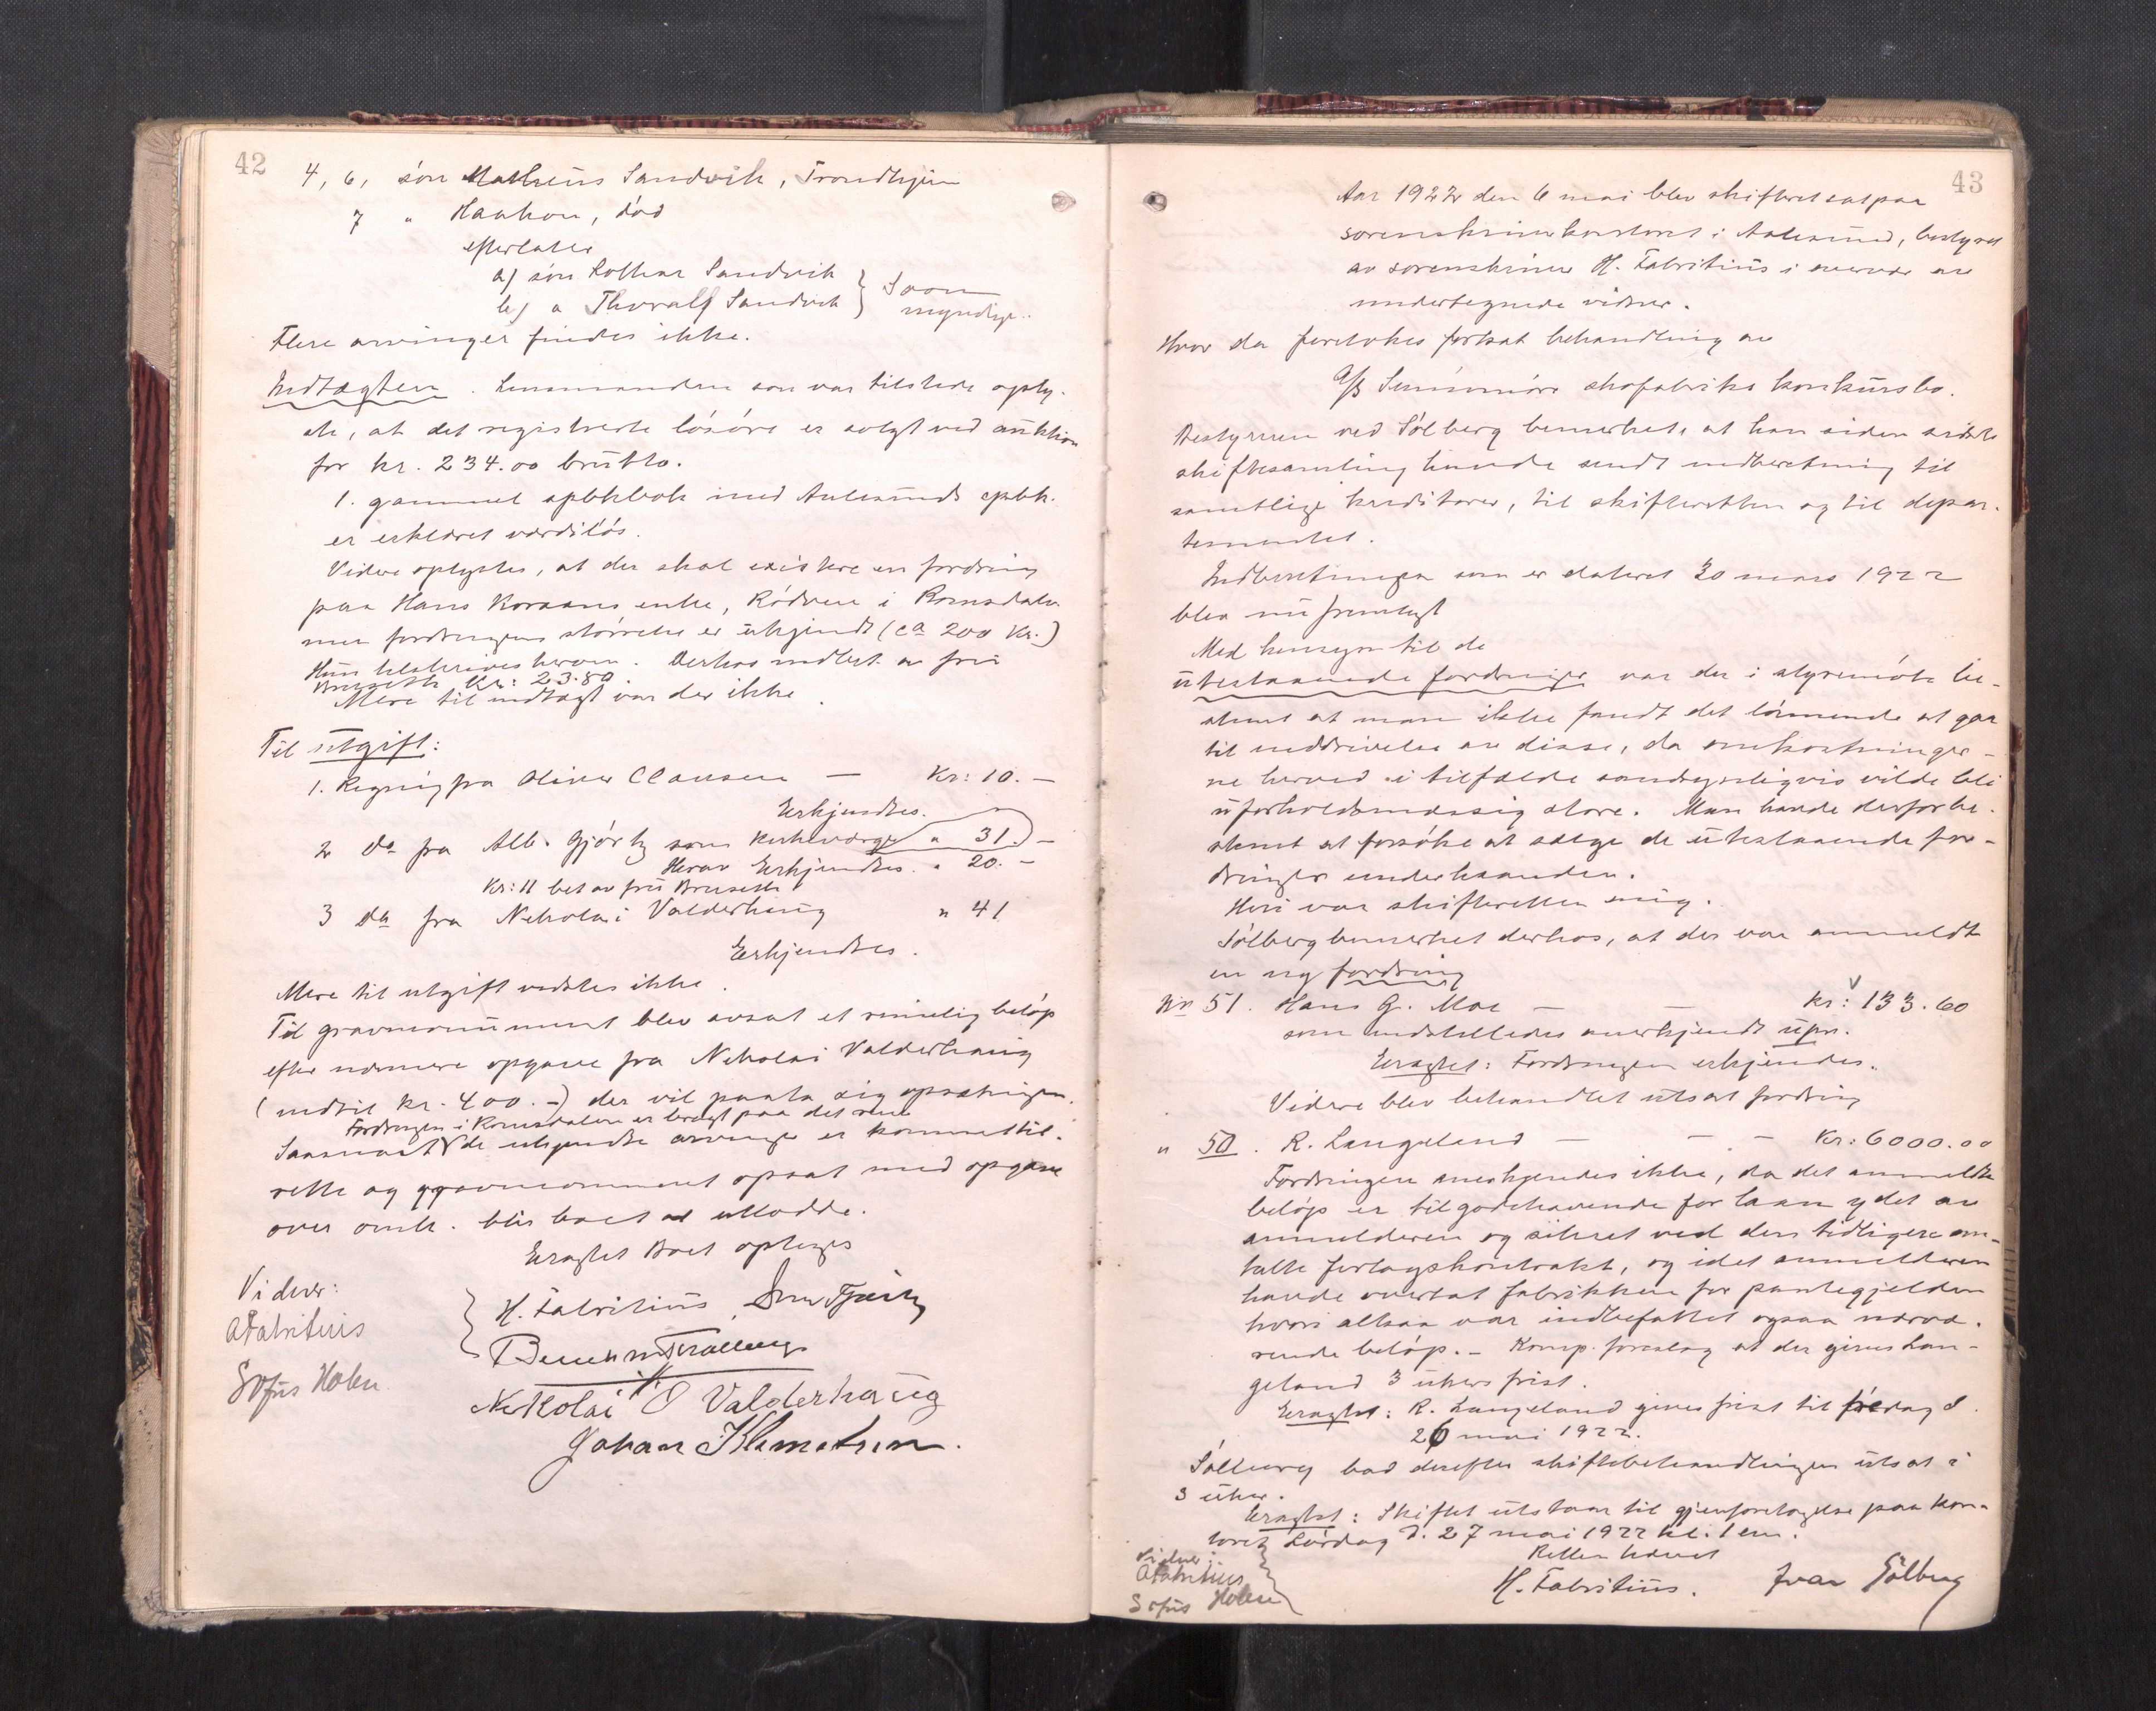 42
4, 6, sön Matheus Sandvik, Trondhjem
7 " Haakon, död
efterlater
a) sön Lothar Sandvik
b) " Thoralf Sandvik } Som myndige.
Flere arvinger findes ikke.
Indtægten. Lensmanden som var tilstede oply-
ste, at det registrerte lösöre er solgt ved auktion
for kr. 234.00 brutto.
1. gammel spbkbok med Aalesunds spbk.
er erklæret værdilös.
Videre oplystes, at der skal existere en fordring
paa Hans Koraans enke, Rödven i Romsdalen
men fordringens störrelse er ukjendt (ca 200 Kr.)
Hun tilskrives herom. Derhos indbet. av fru
Bruseth Kr: 23.80.
Mere til indtægt var der ikke.
Til utgift:
1. Regning fra Oliver Clausen — Kr: 10. —
Erkjendtes.
2 do fra Alb. Gjörtz som kirkeverge " 31. —
Herav Erkjendtes. " 20. —
Kr: 11 bet av fru Bruseth
3 do fra Nikolai Valderhaug " 41
Erkjendtes.
Mere til utgift vidstes ikke.
Til gravmonument blev avsat et rimelig belöp
efter nærmere opgave fra Nikolai Valderhaug
(indtil kr. 400. -) der vil paata sig opsætningen.
Fordringen i Romsdalen er bragt paa det rene
Saasnart de ukjendte arvinger er kommet til-
rette og gravmonument opsat med opgave
over omk. blir boet at utlodde.
Eragtet Boet optages
Vidner:
AFabritius
Sofus Holen
H. Fabritius
Nikolai O Valderhaug
Johan Klemetsen.
43
Aar 1922 den 6 mai blev skifteret sat paa
sorenskriverkontoret i Aalesund, bestyret
av sorenskriver H. Fabritius i overvær av
undertegnede vidner.
Hvor da foretokes fortsat behandling av
A/S Sunnmöre skofabriks konkursbo.
Bestyreren ved Sölberg bemerket, at han siden sidste
skiftesamling havde sendt indberetning til
samtlige kreditorer, til skifteretten og til depar-
tementet.
Indberetningen som er dateret 30 mars 1922
blev nu fremlagt
Med hensyn til de
utestaaende fordringer var der i styremöte be-
stemt at man ikke fandt det lönnende at gaa
til inddrivelse av disse, da omkostninger-
ne herved i tilfælde sandsynligvis vilde bli
uforholdsmæssig store. Man havde derfor be-
stemt at forsöke at sælge de utestaaende for-
dringer underhaanden.
Heri var skifteretten enig.
Sölberg bemerket derhos, at der var anmeldt
en ny fordring
No 51. Hans G. Moe — — kr: 133.60
som indstilledes anerkjendt upr.
Eragtet: Fordringen erkjendes.
Videre blev behandlet utsat fordring
" 50. R. Langeland — — — Kr: 6000.00
Fordringen anerkjendes ikke, da det anmeldte
belöp er tilgodehavende for laan ydet av
anmelderen og sikret ved den tidligere om-
talte forlagskontrakt, og idet anmelderen
havde overtat fabrikken for pantegjelden
hvori altsaa var indbefattet ogsaa nærvæ-
rende belöp. — Komp. foreslog at der gives Lan-
geland 3 ukers frist.
Eragtet: R. Langeland gives frist til fredag d.
26 mai 1922.
Sölberg bad derefter skiftebehandlingen utsat i
3 uker.
Eragtet: Skiftet utstaar til gjenforetagelse paa kon-
toret Lördag d. 27 mai 1922 kl. 1 em.
Retten hævet
Vidner:
AFabritius
Sofus Holen
H. Fabritius. Ivar Sölberg